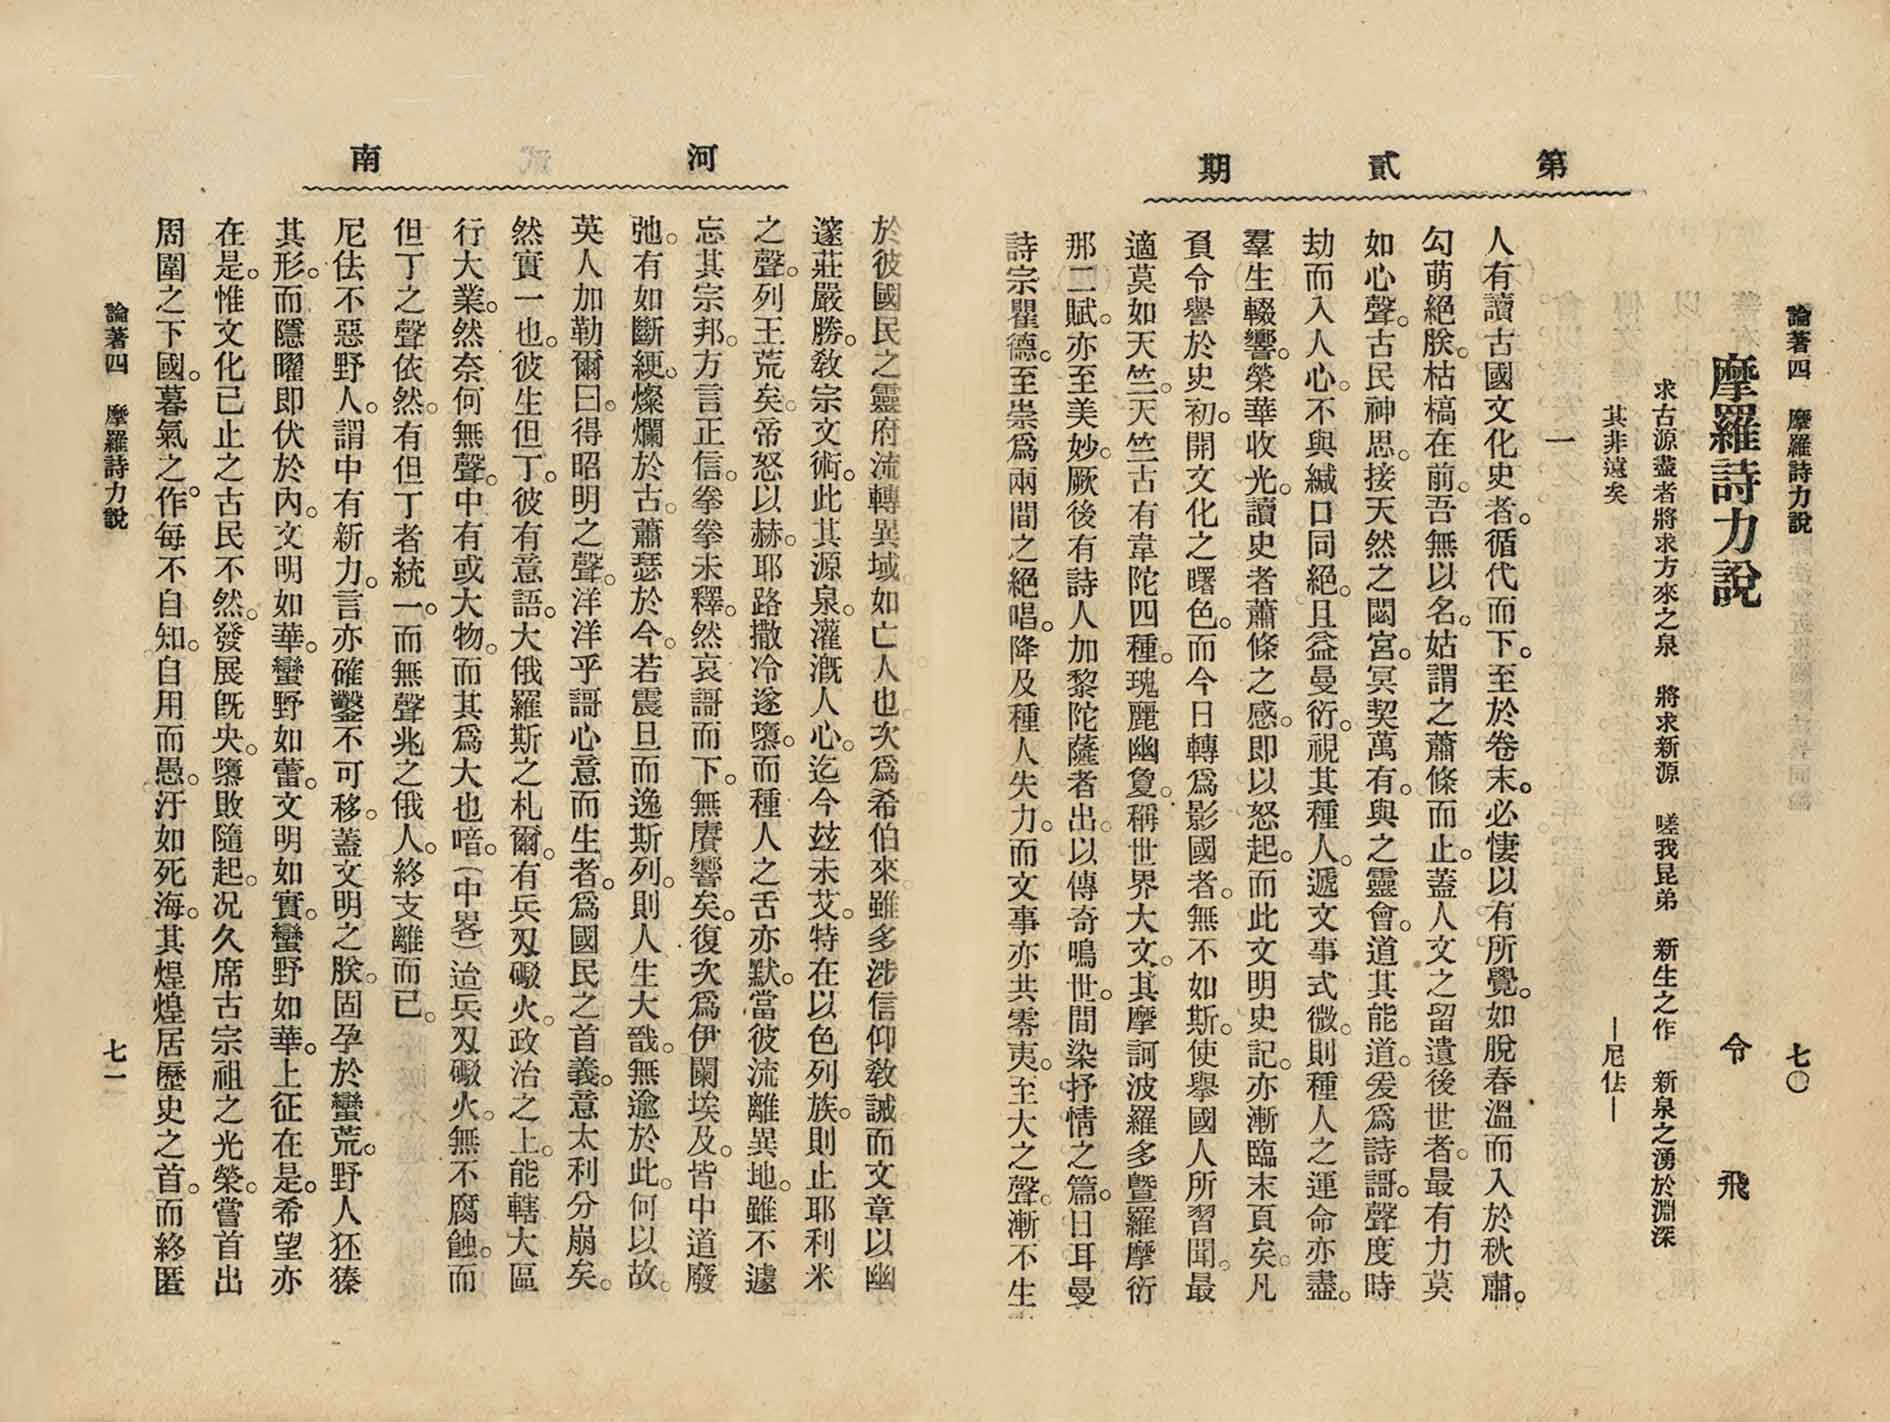 第貳期
論著四　摩羅詩力說　七〇
摩羅詩力說
令飛
求古源盡者將求方來之泉　將求新源　嗟我昆弟　新生之作　新泉之湧於淵深
其非遠矣　—尼佉—
一
人有讀古國文化史者。循代而下。至於卷末。必悽以有所覺。如脫春溫而入於秋肅。
勾萌絕朕。枯槁在前。吾無以名。姑謂之蕭條而止。蓋人文之留遺後世者。最有力莫
如心聲。古民神思。接天然之閟宮。冥契萬有。與之靈會。道其能道。爰爲詩謌。聲度時
劫而入人心。不與緘口同絕。且益曼衍。視其種人。遞文事式微。則種人之運命亦盡。
羣生輟響。榮華收光。讀史者蕭條之感。即以怒起。而此文明史記。亦漸臨末頁矣。凡
負令譽於史初。開文化之曙色。而今日轉爲影國者。無不如斯。使舉國人所習聞。最
適莫如天竺。天竺古有韋陀四種。瑰麗幽敻。稱世界大文。其摩訶波羅多曁羅摩衍
那二賦。亦至美妙。厥後有詩人加黎陀薩者出。以傳奇鳴世。間染抒情之篇。日耳曼
詩宗瞿德。至崇爲兩間之絕唱。降及種人失力。而文事亦共零夷。至大之聲。漸不生
河南
於彼國民之靈府流轉異域。如亡人也。次爲希伯來。雖多涉信仰敎誡。而文章以幽
邃莊嚴勝。敎宗文術。此其源泉。灌漑人心。迄今玆未艾。特在以色列族。則止耶利米
之聲。列王荒矣。帝怒以赫。耶路撒冷遂隳。而種人之舌亦默。當彼流離異地。雖不遽
忘其宗邦。方言正信。拳拳未釋。然哀謌而下。無賡響矣。復次爲伊闌埃及。皆中道廢
弛。有如斷綆。燦爛於古。蕭瑟於今。若震旦而逸斯列。則人生大戩。無逾於此。何以故。
英人加勒爾曰。得昭明之聲。洋洋乎謌心意而生者。爲國民之首義。意太利分崩矣。
然實一也。彼生但丁。彼有意語。大俄羅斯之札爾。有兵刄礮火。政治之上。能轄大區
行大業。然奈何無聲。中有或大物。而其爲大也喑。（中畧）迨兵刄礮火。無不腐蝕。而
但丁之聲依然。有但丁者統一。而無聲兆之俄人。終支離而已。
尼佉不惡野人。謂中有新力。言亦確鑿不可移。蓋文明之朕。固孕於蠻荒。野人狉獉
其形。而隱曜即伏於內。文明如華。蠻野如蕾。文明如實。蠻野如華。上征在是。希望亦
在是。惟文化已止之古民不然。發展旣央。隳敗隨起。况久席古宗祖之光榮。嘗首出
周圍之下國。暮氣之作。每不自知。自用而愚。汙如死海。其煌煌居歷史之首。而終匿
論著四　摩羅詩力說　七一